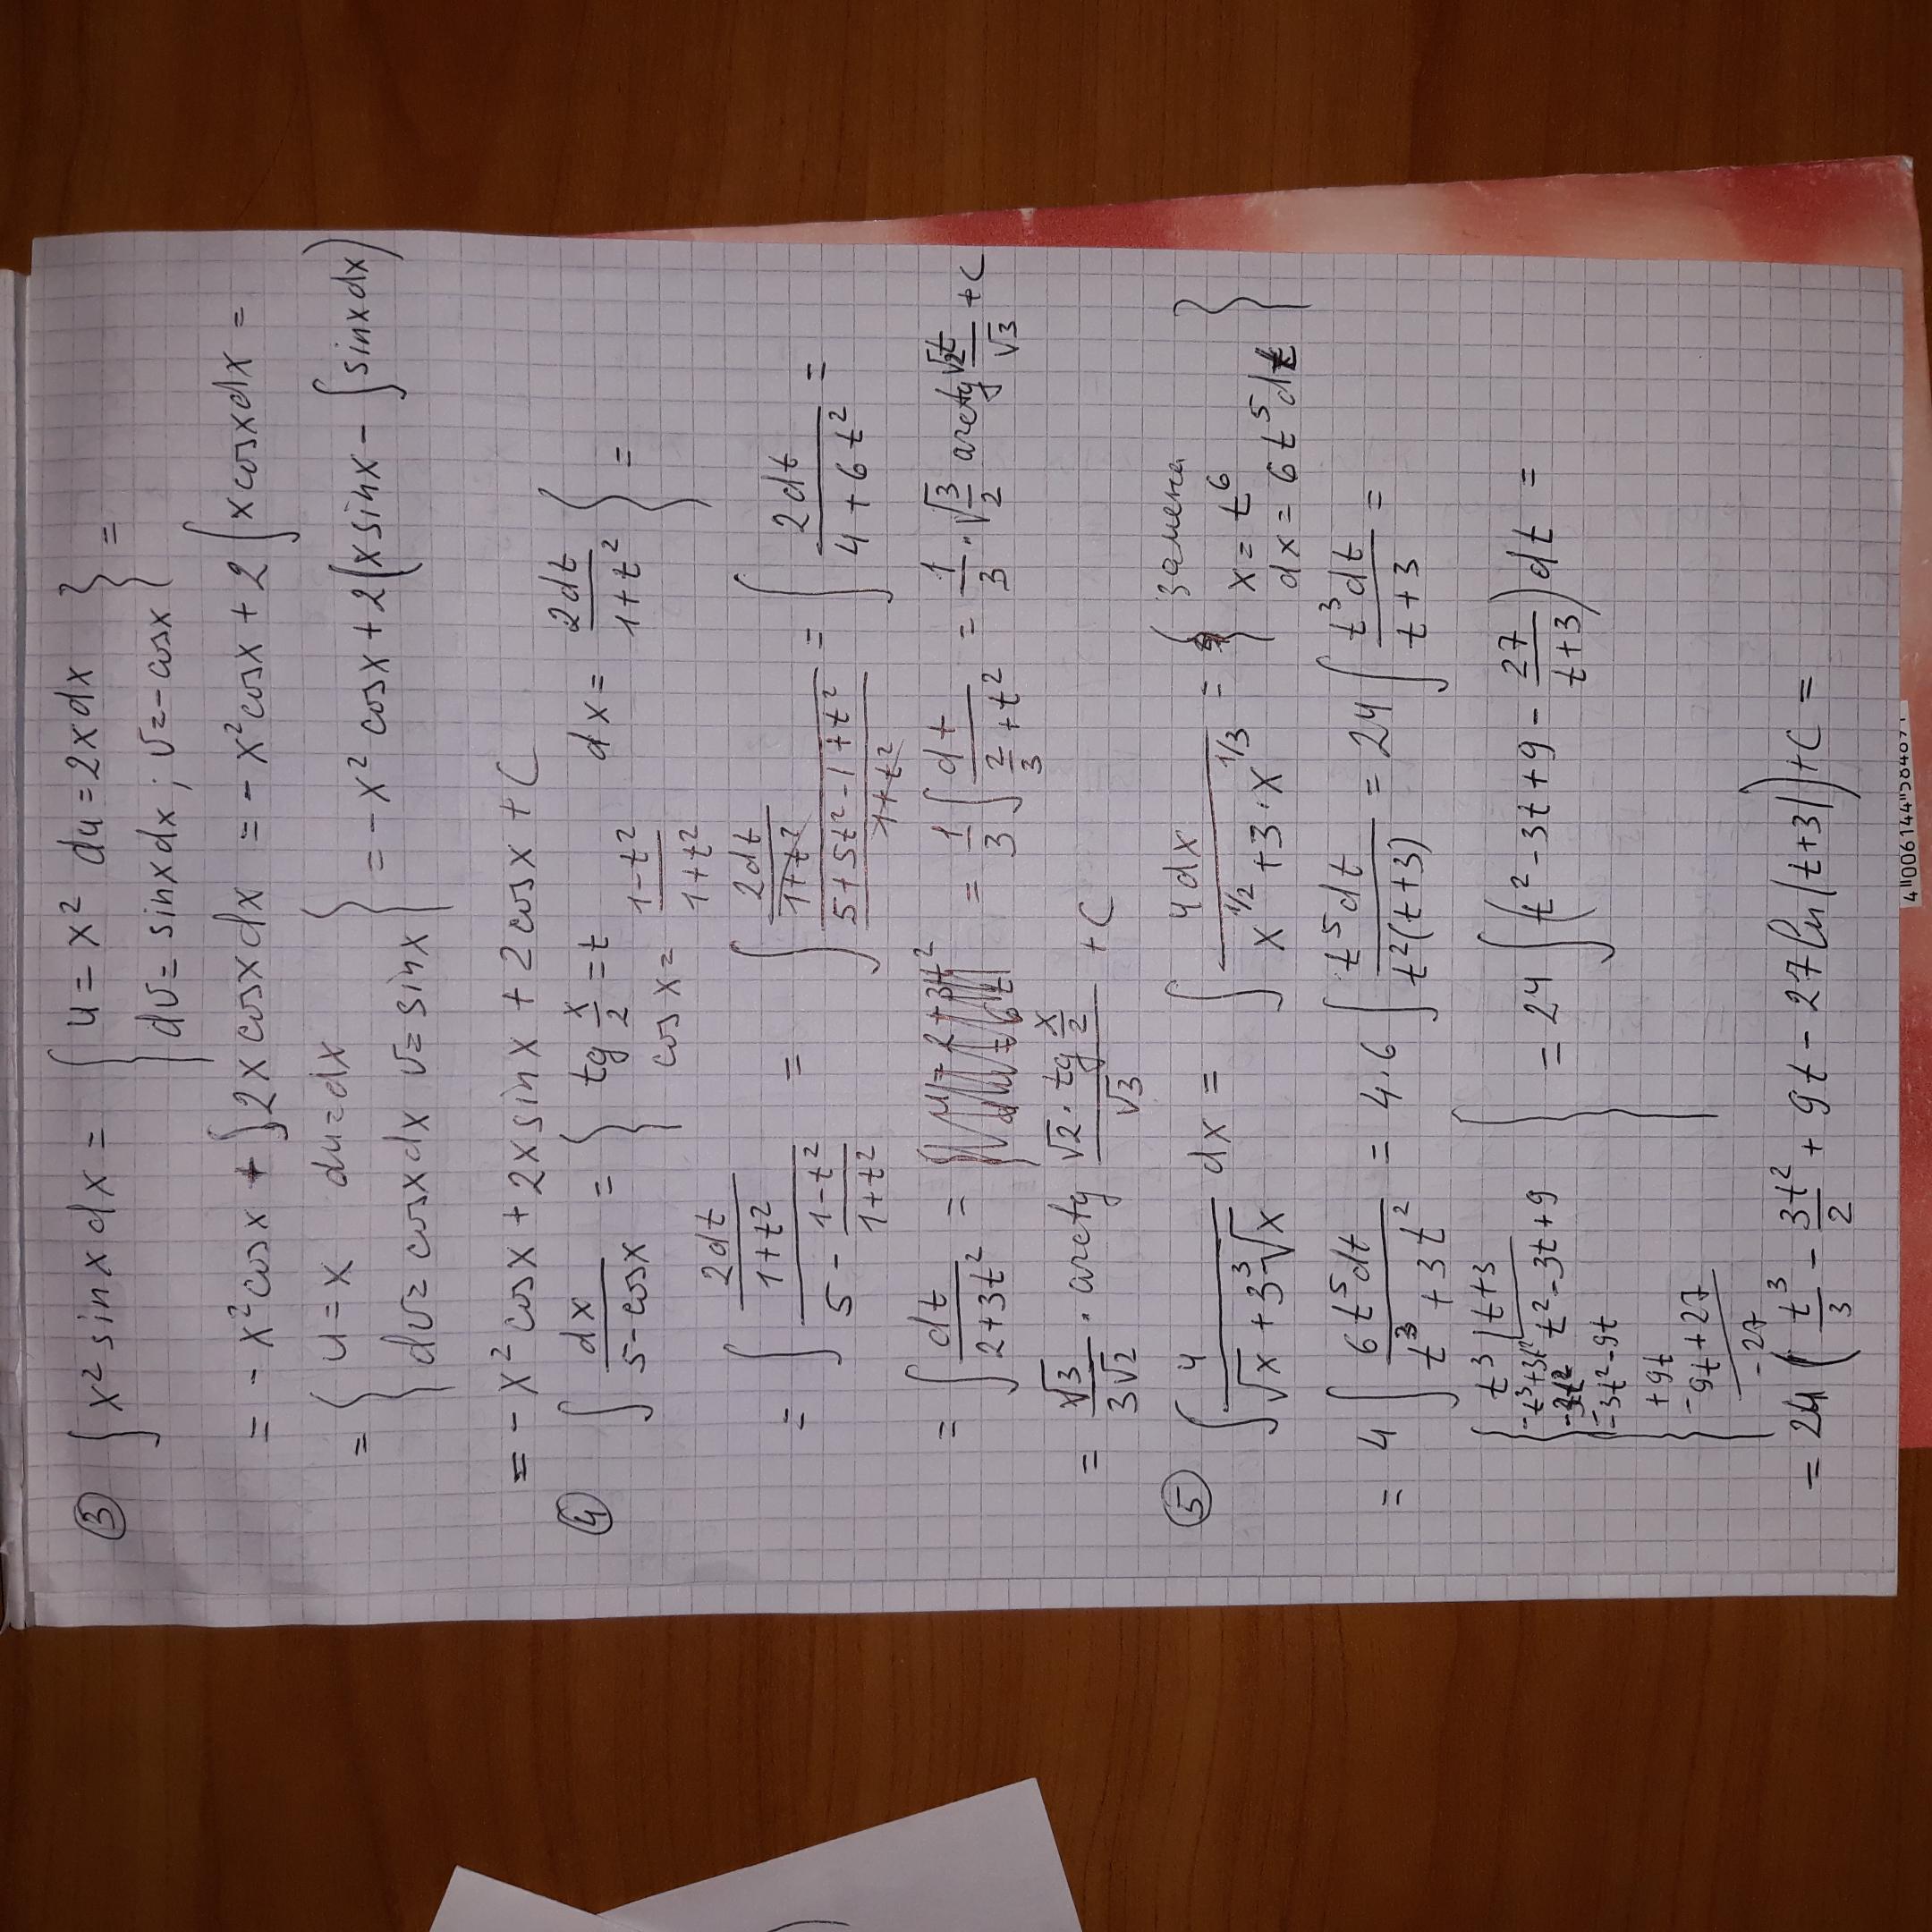 ③ ∫ x² sin x dx = { u = x² du = 2x dx
dv = sin x dx ; v = - cos x } =
= - x² cos x + ∫ 2x cos x dx = - x² cos x + 2 ∫ x cos x dx =
= { u = x du = dx
dv = cos x dx v = sin x } = - x² cos x + 2 (x sin x - ∫ sin x dx)
= - x² cos x + 2x sin x + 2 cos x + C
④ ∫ dx/(5 - cos x) = { tg x/2 = t dx = 2dt/(1+t²)
cos x = (1-t²)/(1+t²) } =
= ∫ (2dt/(1+t²))/(5 - (1-t²)/(1+t²)) = ∫ (2dt/(1+t²))/((5+5t²-1+t²)/(1+t²)) = ∫ 2dt/(4+6t²) =
= ∫ dt/(2+3t²) = = 1/3 ∫ dt/(2/3 + t²) = 1/3 · √3/2 arctg √2t/√3 + C
= √3/(3√2) · arctg (√2 · tg x/2)/√3 + C
⑤ ∫ 4/(√x + 3 ³√x) dx = ∫ 4dx/(x^1/2 + 3 · x^1/3) = { замена
x = t⁶
dx = 6t⁵dt }
= 4 ∫ 6t⁵dt/(t³ + 3t²) = 4·6 ∫ t⁵dt/(t²(t+3)) = 24 ∫ t³dt/(t+3) =
{ t³ | t+3
- t³+3t² t² - 3t + 9
-3t²
-3t² - 9t
+9t
- 9t + 27
-27 } = 24 ∫ (t² - 3t + 9 - 27/(t+3)) dt =
= 24 (t³/3 - 3t²/2 + 9t - 27 ln |t+3|) + C =
4"006144"584897